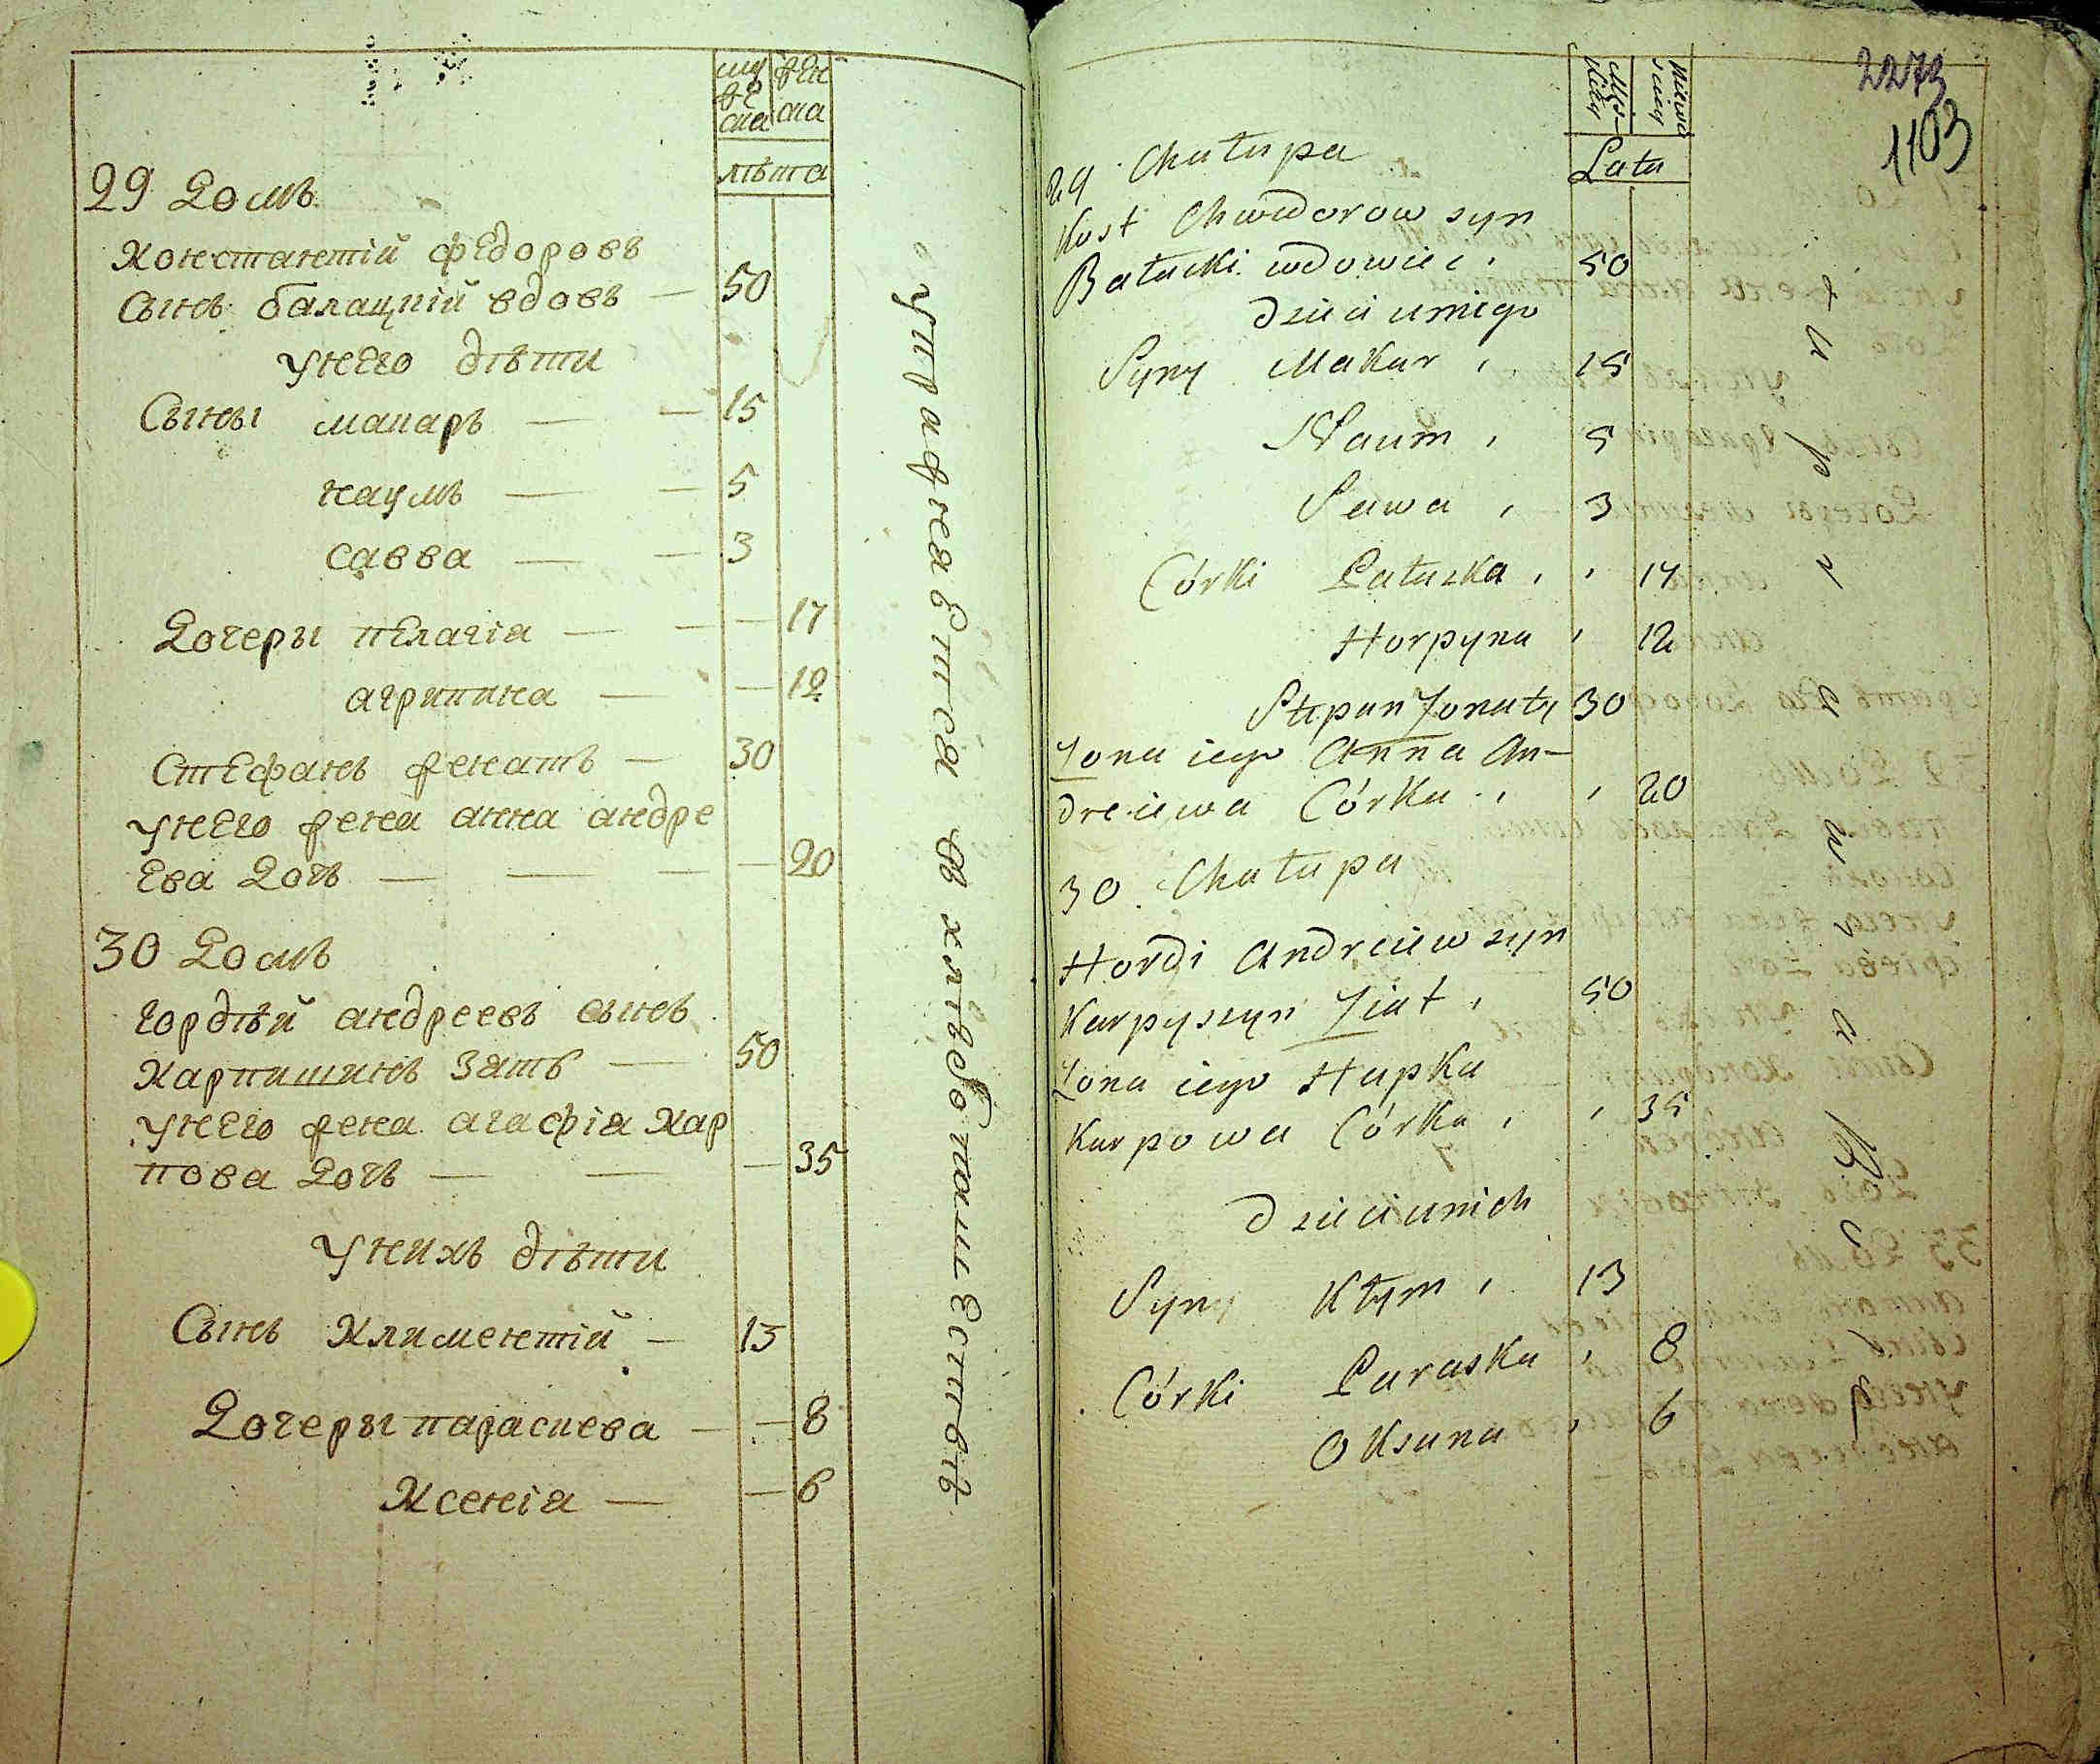 муже
ска
жен
ска
лѣта
29 Домъ
Констянтій федоровъ
сынъ балацкій вдовъ — 50
унего дѣти
Сыны макаръ — — 15
наумъ — — 5
савва — — 3
Дочеры пелагія — — — 17
агрипина — — 12
Стефанъ женатъ — 30
унего жена анна андре
ева Дочъ — — — — 20
30 Домъ
гордѣй андреевъ сынъ
Карпишинъ зять — 50
унего жена агафія Кар
пова Дочъ — — — 35
унихъ дѣти
Сынъ Климентій — 13
Дочеры параскева — — 8
Ксенія — — 6
упражнается в хлѣбопашествѣ
2273
1103
Męs-
kiey
Lata
29 Chałupa
Kost Chwedorow syn
Bałacki wdowiec , 50
Dzieci uniego
Syny Makar , 15
Naum , 5
Sawa , 3
Córki Pałazka , , 17
Horpyna , 12
Stepan Żonaty 30
Żona iego Anna An-
dreiewa Córka , , 20
30 Chałupa
Hordi Andreiew syn
Karpyszyn Ziat , 50
Żona iego Hapka
Karpowa Córka , , 35
Dzieci unich
Syny Kłym , 13
Córki Paraska , 8
Oksana , 6